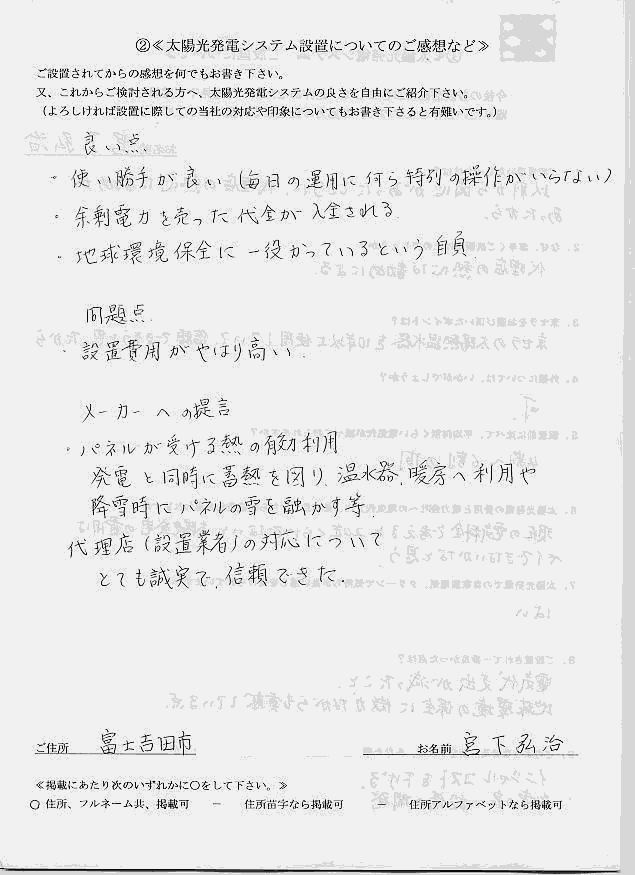 ②≪太陽光発電システム設置についてのご感想など≫
ご設置されてからの感想を何でもお書き下さい。
又、これからご検討される方へ、太陽光発電システムの良さを自由にご紹介下さい。
（よろしければ設置に際しての当社の対応や印象についてもお書き下さると有難いです。）
良い点
・使い勝手が良い（毎日の運用に何ら特別の操作がいらない）
・余剰電力を売った代金が入金される
・地球環境保全に一役かっているという自負
問題点
・設置費用がやはり高い.
メーカーへの提言
・パネルが受ける熱の有効利用
発電と同時に蓄熱を図り、温水器、暖房へ利用や
降雪時にパネルの雪を融かす等.
代理店（設置業者）の対応について
とても誠実で、信頼できた.
ご住所 富士吉田市 お名前 宮下弘治
≪掲載にあたり次のいずれかに〇をして下さい。≫
〇 住所、フルネーム共、掲載可 － 住所苗字なら掲載可 － 住所アルファベットなら掲載可